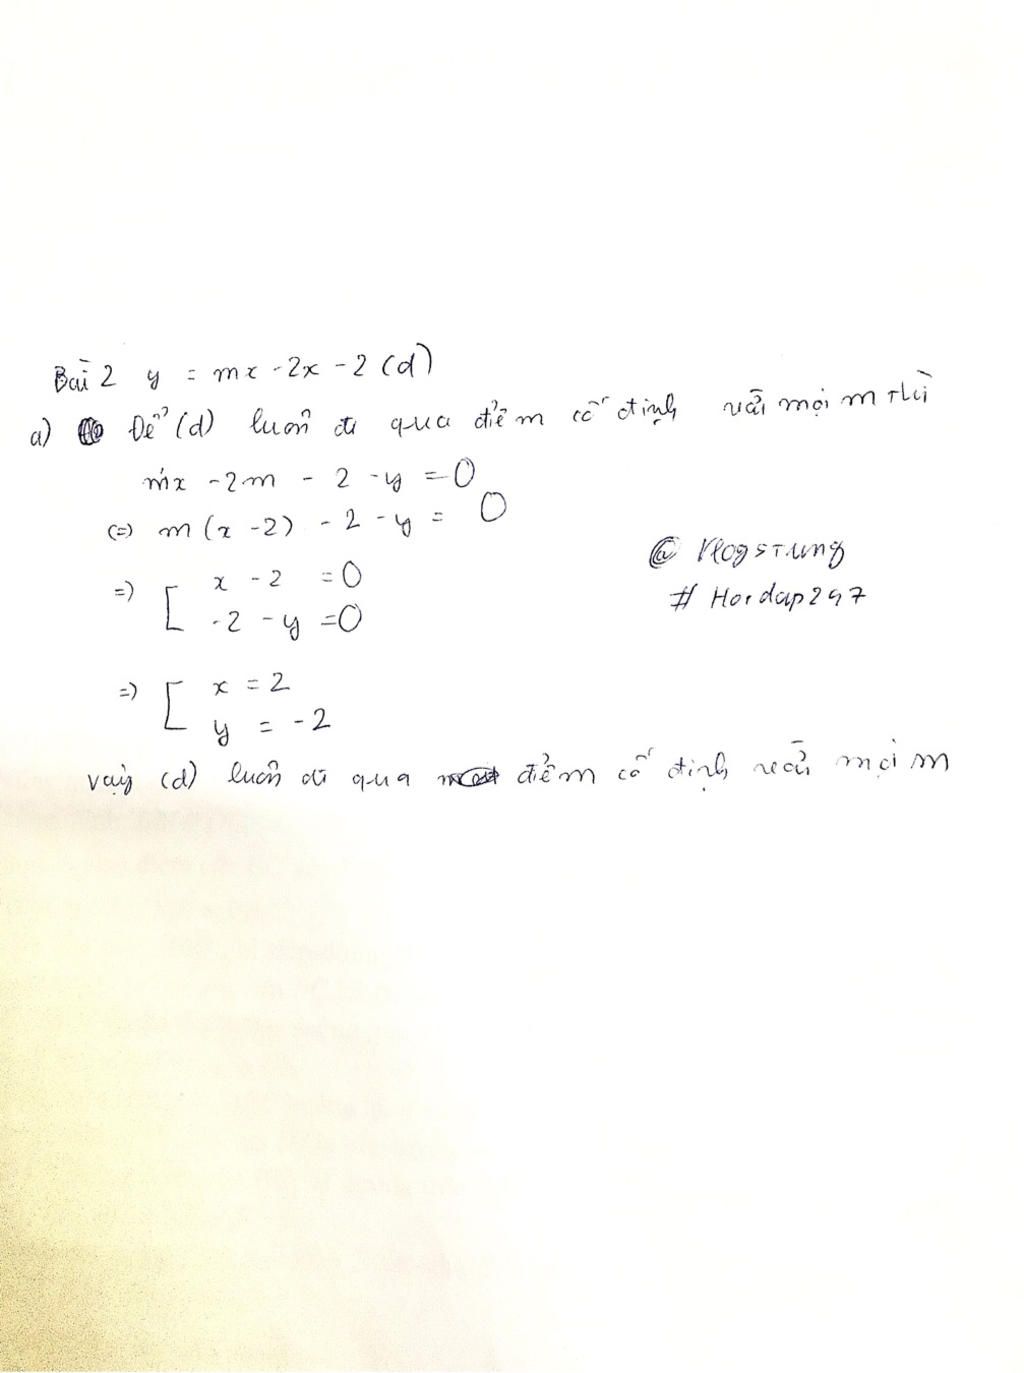 Bài 2 y = mx - 2x - 2 (d)
a) Để (d) luôn đi qua điểm cố định với mọi m thì
mx - 2m - 2 - y = 0
(=) m(x - 2) - 2 - y = 0
=) [ x - 2 = 0
-2 - y = 0
@ VlogsTung
# Hoidap247
=) [ x = 2
y = -2
vậy (d) luôn đi qua một điểm cố định với mọi m